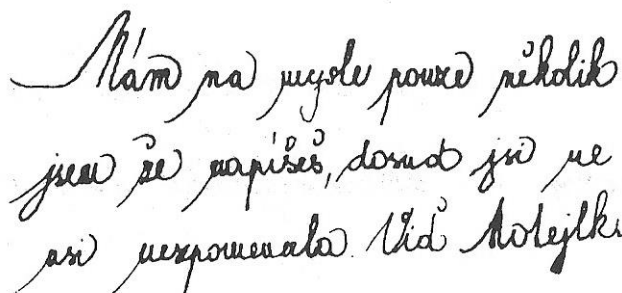 Mám na mysle pouze několik
jsem že napíšeš, dosud jsi ne
asi nezpomenala. Viď Motejlk